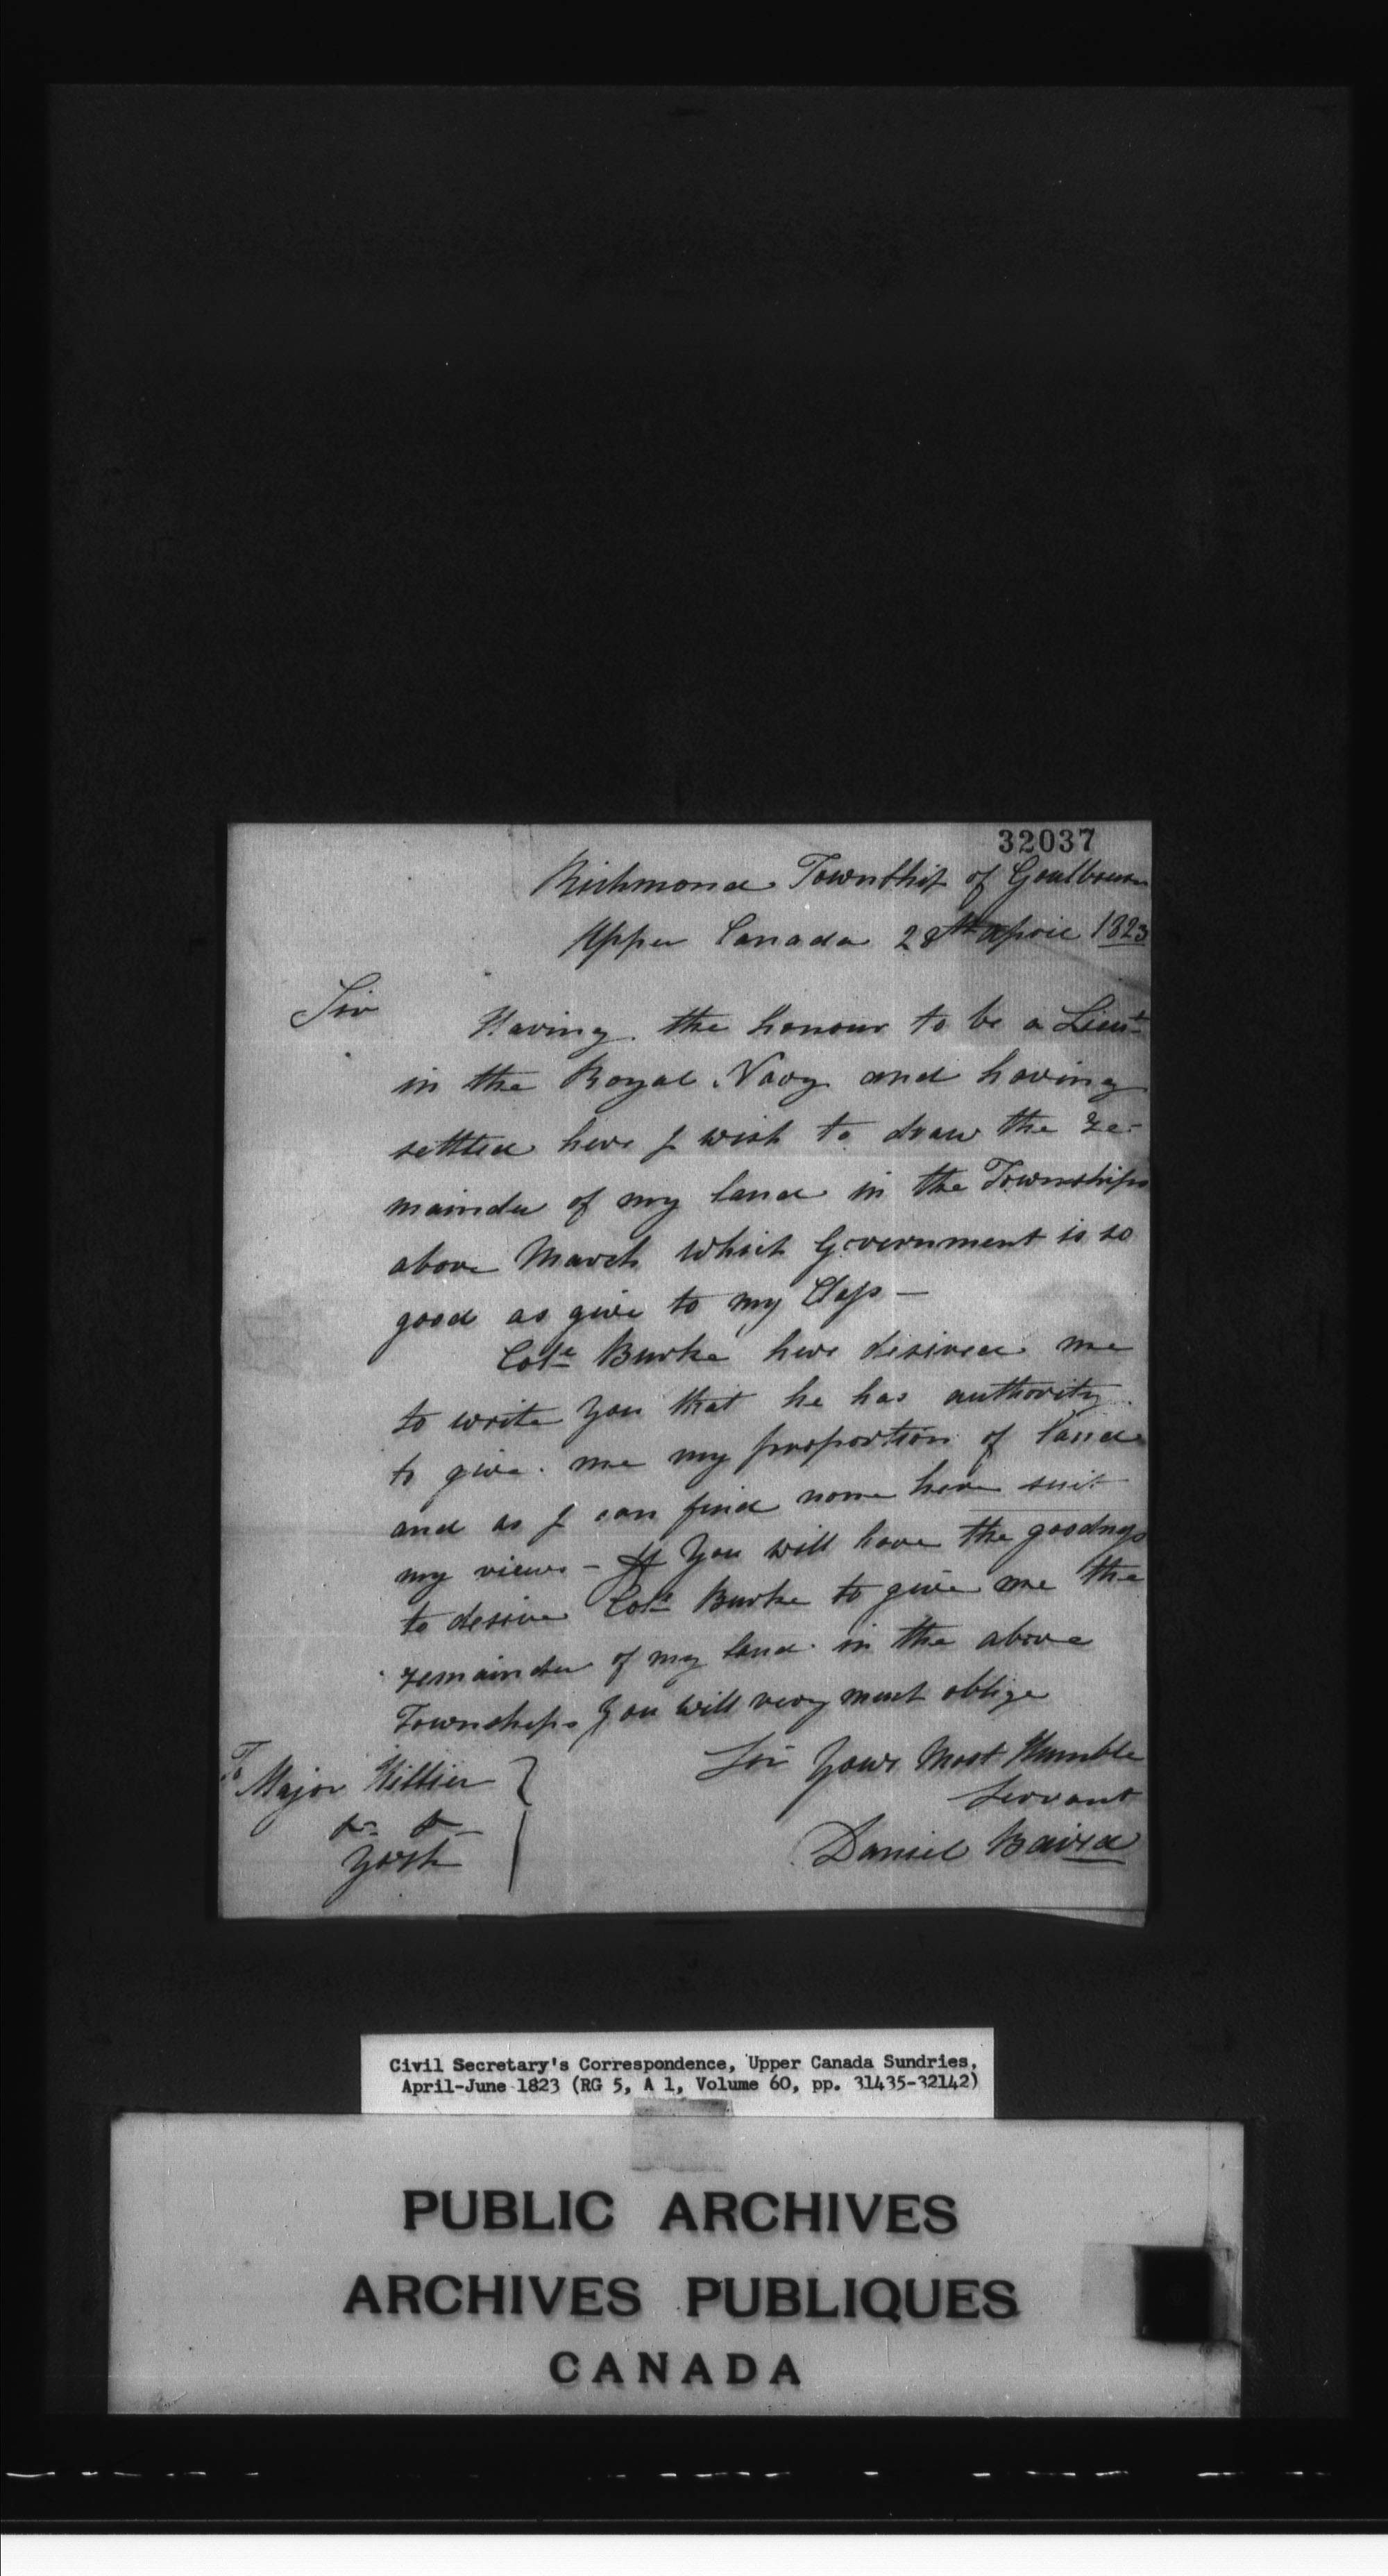 32037
Richmond Township of Goulbourn
Upper Canada 28th April 1823
Sir
Having the honour to be a Lieut
in the Royal Navy and having
settled here I wish to draw the re-
mainder of my land in the Townships
above March which Government is so
good as give to my Class —
Colo Burke here desired me
to write you that he has authority
to give me my proportion of land
and as I can find none here suit
my views - If you will have the goodness
to desire Colo Burke to give me the
remainder of my land in the above
Townships you will very much oblige
Sir Your Most Humble
Servant
Daniel Baird
To
Major Hillier
York
Civil Secretary's Correspondence, Upper Canada Sundries,
April-June 1823 (RG 5, A 1, Volume 60, pp. 31435-32142)
PUBLIC ARCHIVES
ARCHIVES PUBLIQUES
CANADA